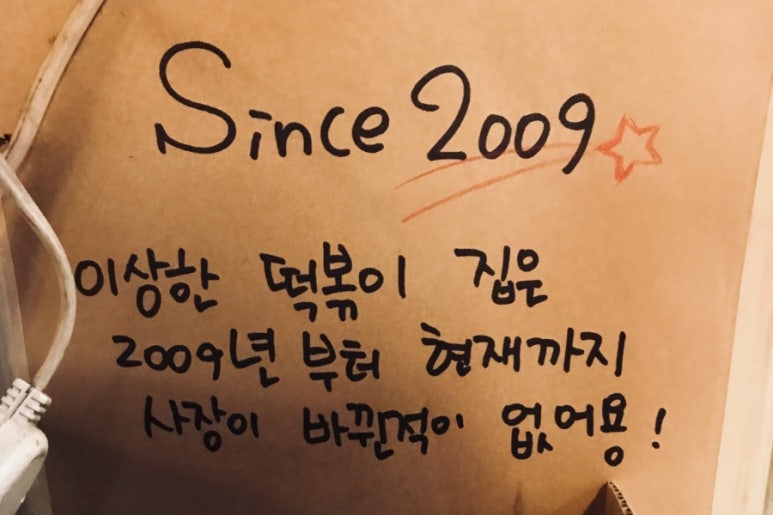 Since 2009
이상한 떡볶이 집은
2009년 부터 현재까지
사장이 바뀐적이 없어용!